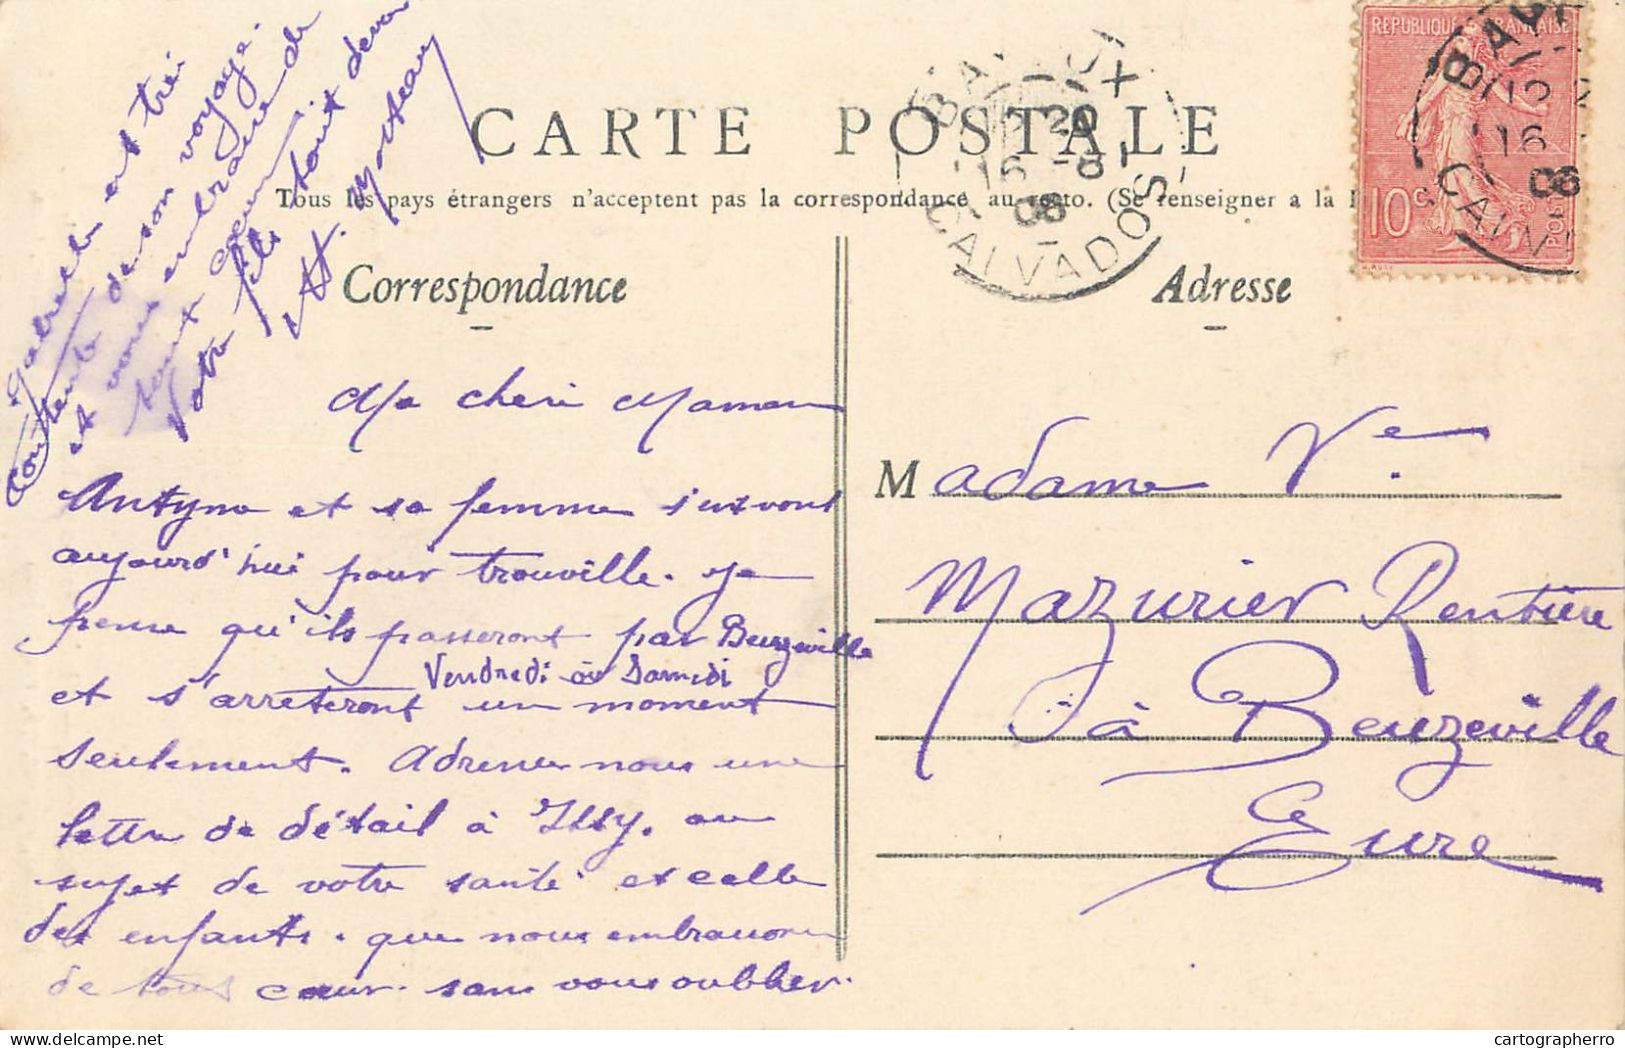 CARTE POSTALE
Tous les pays étrangers n'acceptent pas la correspondance au recto. (Se renseigner a la
Correspondance
Adresse
REPUBLIQUE FRANÇAISE
10 c
POSTES
BAYEUX
20
16 -8
08
CALVADOS
16
08
CALV
Ma cheri Maman
et sa femme s'en vont
aujourd'hui pour trouville. Je
pense qu'ils passeront par Beuzeville
Vendredi ou Samedi
et s'arreteront un moment
seulement. Adresser nous une
lettre de détail à Issy. au
sujet de votre santé et celle
des enfants. que nous embrassons
de tous cœur. sans vous oublier.
Gabriel est très
content de son voyage.
et vous embrasse de
tout cœur
Votre fils tout devoué
Madame Ve
Mazurier Rentière
à Beuzeville
Eure
cartographerro